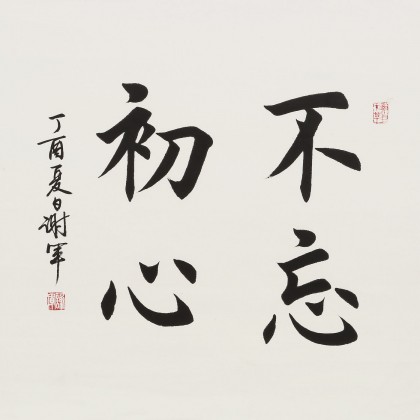 不忘
初心
丁酉夏日谢军